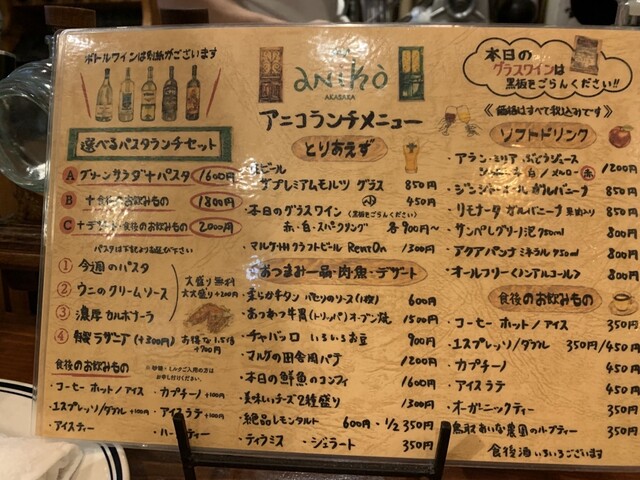 ボトルワインは別紙がございます
aniko
AKASAKA
アニコランチメニュー
本日の
グラスワインは
黒板をごらんください!!
《価格はすべて税込みです》
選べるパスタランチセット
A グリーンサラダ+パスタ 1600円
B +食後のお飲みもの 1800円
C +デザート・食後のお飲みもの 2000円
パスタは下記よりお選び下さい
① 今週のパスタ
② ウニのクリームソース
③ 濃厚カルボナーラ
④ ラザニア (+300円)
大盛り無料
大大盛り+200円
お得な1.5倍
+700円
食後のお飲みもの
※砂糖・ミルクご入用の方は
お申し付けください。
・コーヒー ホット/アイス
・カプチーノ +100円
・エスプレッソ/ダブル +100円
・アイスラテ +100円
・アイスティー
・ハーブティー
とりあえず
・生ビール
ザプレミアムモルツ グラス 850円
小 450円
・本日のグラスワイン (黒板をごらんください)
赤・白・スパークリング 各900円〜
・マルケ州クラフトビール RentOn 1300円
おつまみ一品・肉・魚・デザート
・柔らか牛タン パセリのソース(1枚) 600円
・あつあつ牛胃(トリッパ)オーブン焼 1500円
・チャバッコ いろいろお豆 900円
・マルケの田舎風パテ 1200円
・本日の鮮魚のコンフィ 1600円
・美味しいチーズ2種盛り 1300円
・絶品レモンタルト 600円・1/2 350円
・ティラミス ・ジェラート 350円
ソフトドリンク
・アラン・ミリア ぶどうジュース
白/メルロー 赤 1200円
・ジンジャーエール ガルバニーナ 850円
・リモナータ ガルバニーナ 850円
・サンペレグリーノ 泡 750ml 950円
・アクアパンナ ミネラル 750ml 800円
・オールフリー<ノンアルコール> 800円
食後のお飲みもの
・コーヒー ホット/アイス 350円
・エスプレッソ/ダブル 350円/450円
・カプチーノ 450円
・アイスラテ 450円
・オーガニックティー 450円
農園のハーブティー 450円
食後酒いろいろございます